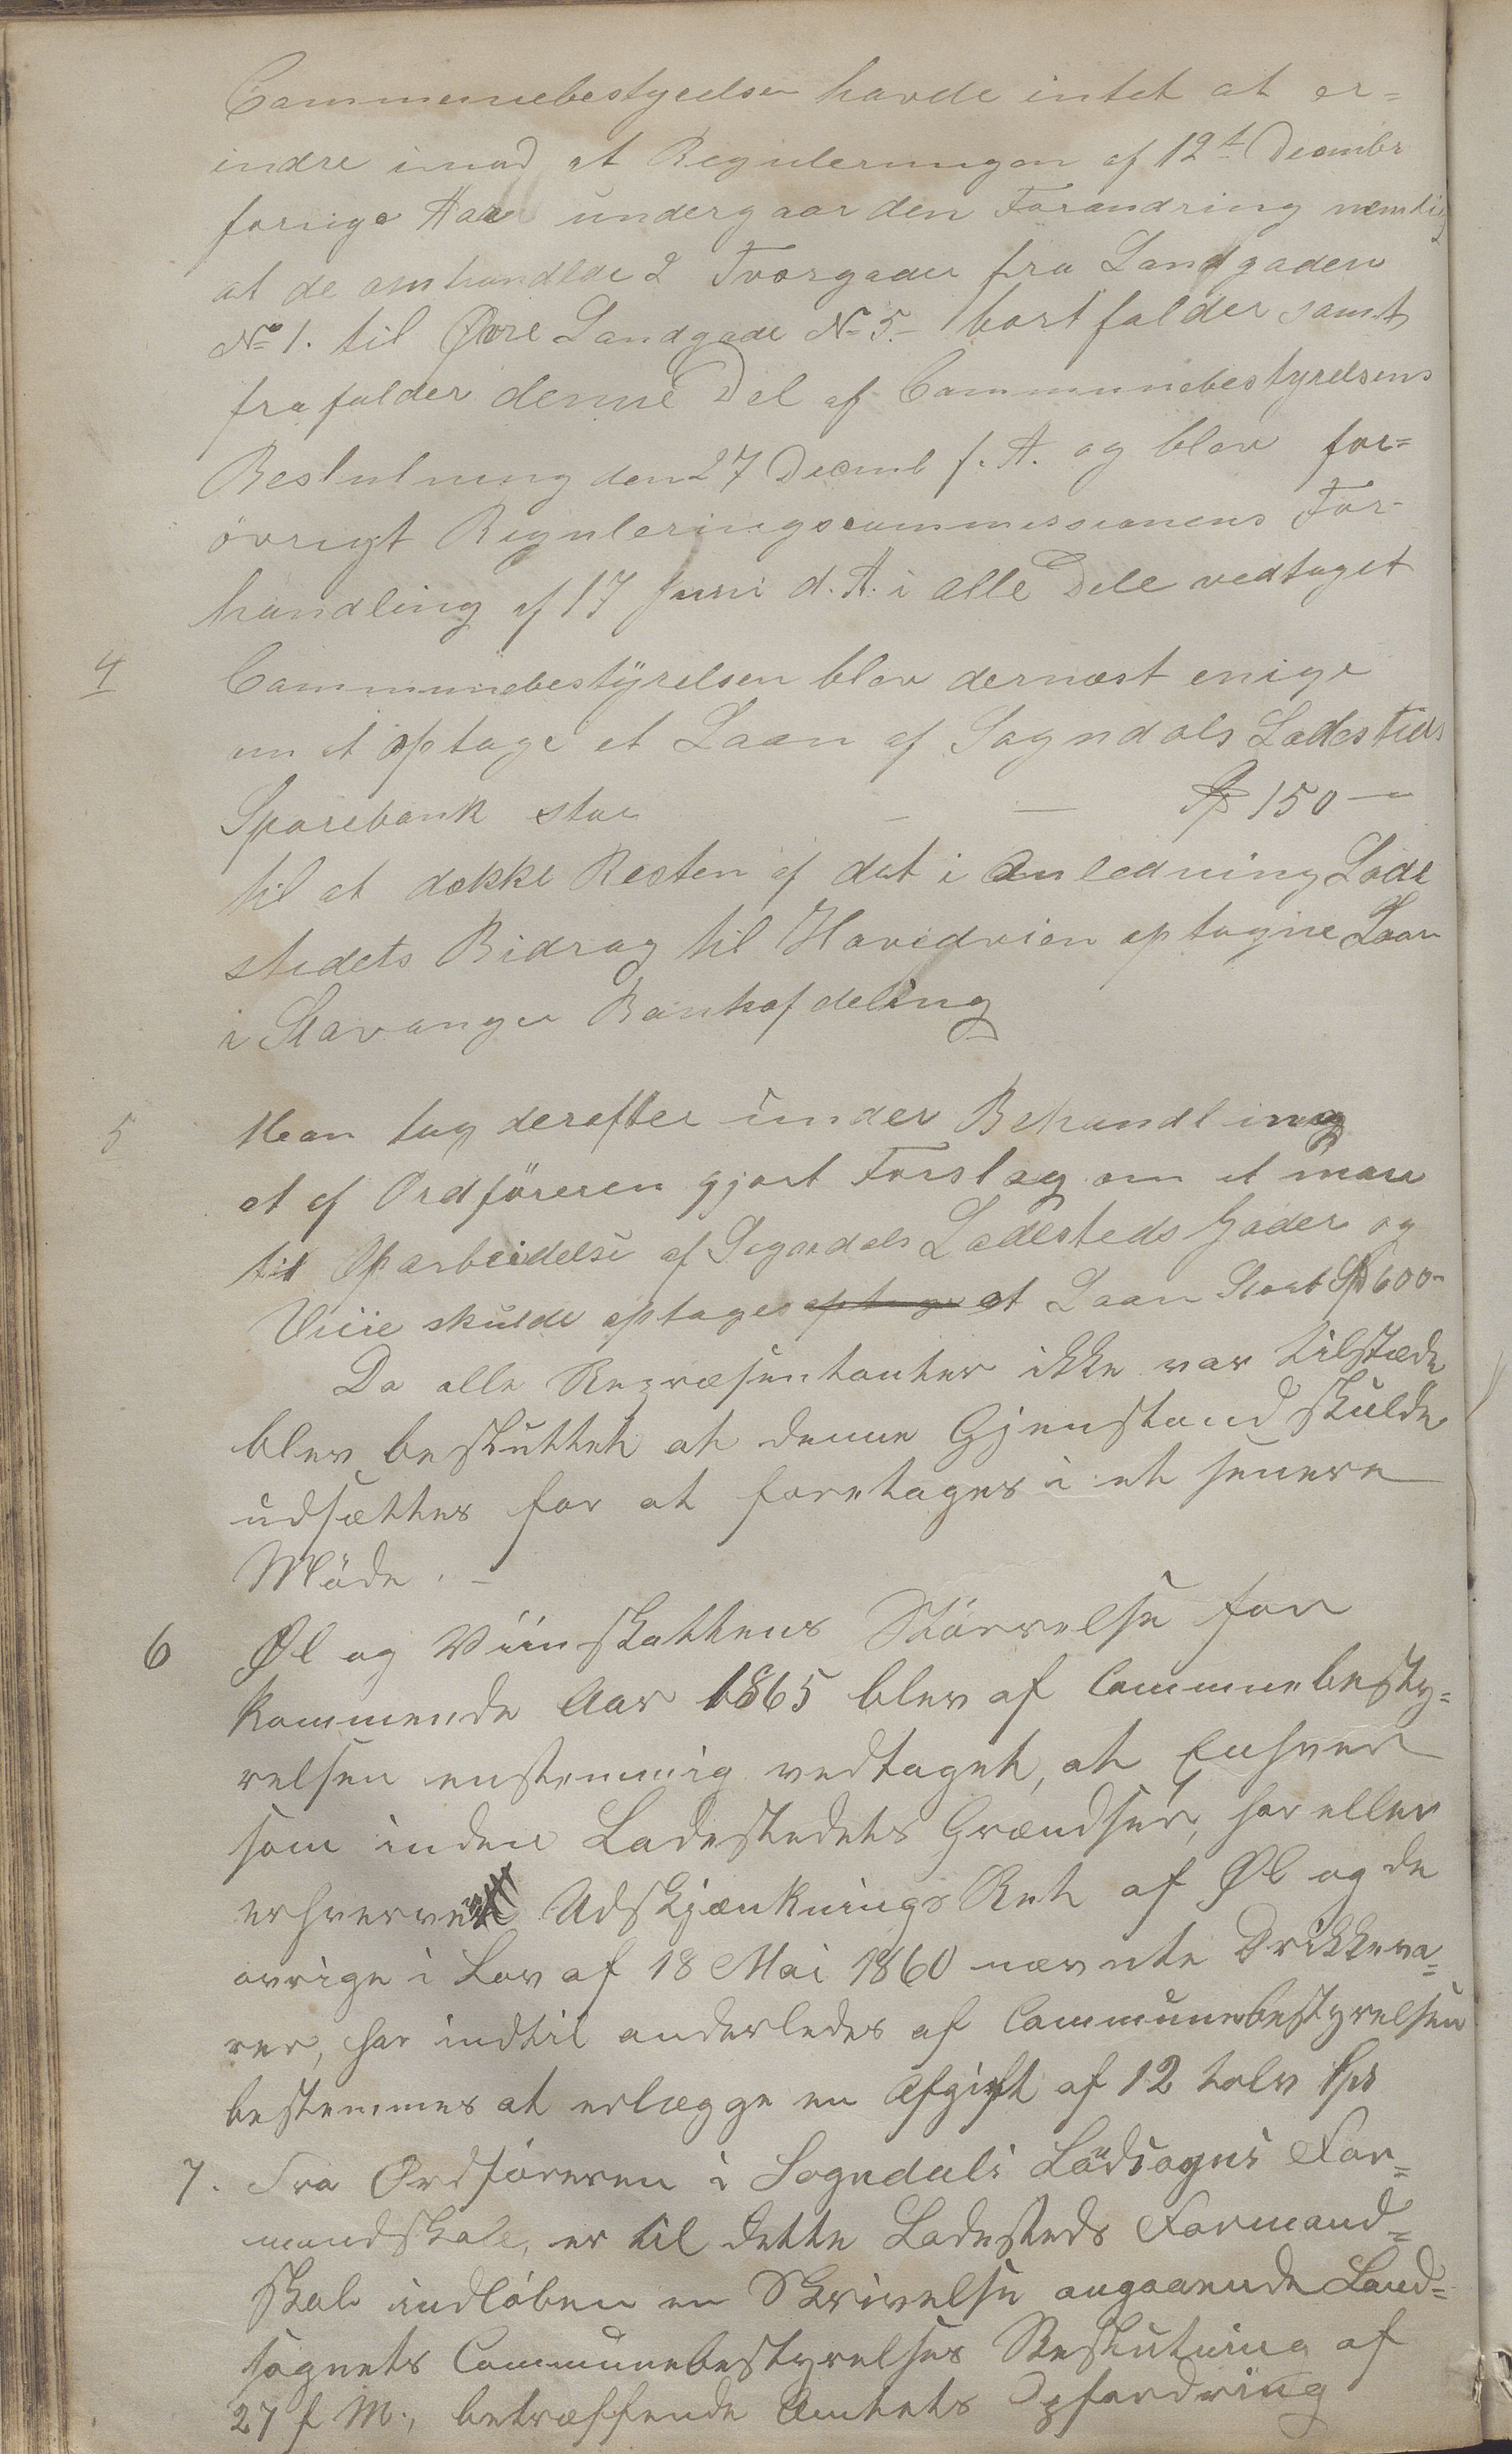 Communebestyrelsen havde intet at er=
indre imod at Reguleringen af 12te Decembr
forrige Aar undergaar den Forandring nemlig
at de omhandlede 2 Tværgader fra Landgaden
No 1. til Øvre Landgade No 5.- bortfalder samt
frafalder denne Del af Communebestyrelsens
Beslutning den 27 Decemb f. A. og blev for=
övrigt Reguleringscommissionens For-
handling af 17 Juni d. A. i alle Dele vedtaget
4 Communebestÿrelsen blev dernæst enige
om at optage et Laan af Sogndals Ladesteds
Sparebank stor — — Sp 150 —
til at dække Resten af det i Anledning Lade
stedets Bidrag til Hovedveien optagne Laan
i Stavanger Bankafdeling
5 Man tog derefter under Behandling
et af Ordföreren gjort Forslag om at man
til Oparbeidelse af Sogndals Ladesteds Gader og
Veiie skulde optages optage et Laan Stort Sp 600-
Da alle Repræsentanter ikke var tilstæde
blev besluttet at denne Gjenstand skulde
udsættes for at foretages i et senere
Möde. -
6 Øl og Viinskattens Störrelse for
kommende Aar 1865 blev af Communebesty=
relsen enstemmig vedtaget, at Enhver
som inden Ladestedets Grændser, har eller
erhverver Udskjænknings Ret af Øl og de
øvrige i Lov af 18 Mai 1860 nævnte Drikkeva=
rer, har indtil anderledes af Communebestyrelsen
bestemmes at erlægge en Afgift af 12 tolv Spd
7. Fra Ordföreren i Sogndals Landsogns For=
mandskab, er til dette Ladesteds Formand=
skab indlöben en Skrivelse angaaende Land=
sognets Communebestyrelses Beslutning af
27 f. M., betræffende Amtets Opfordring